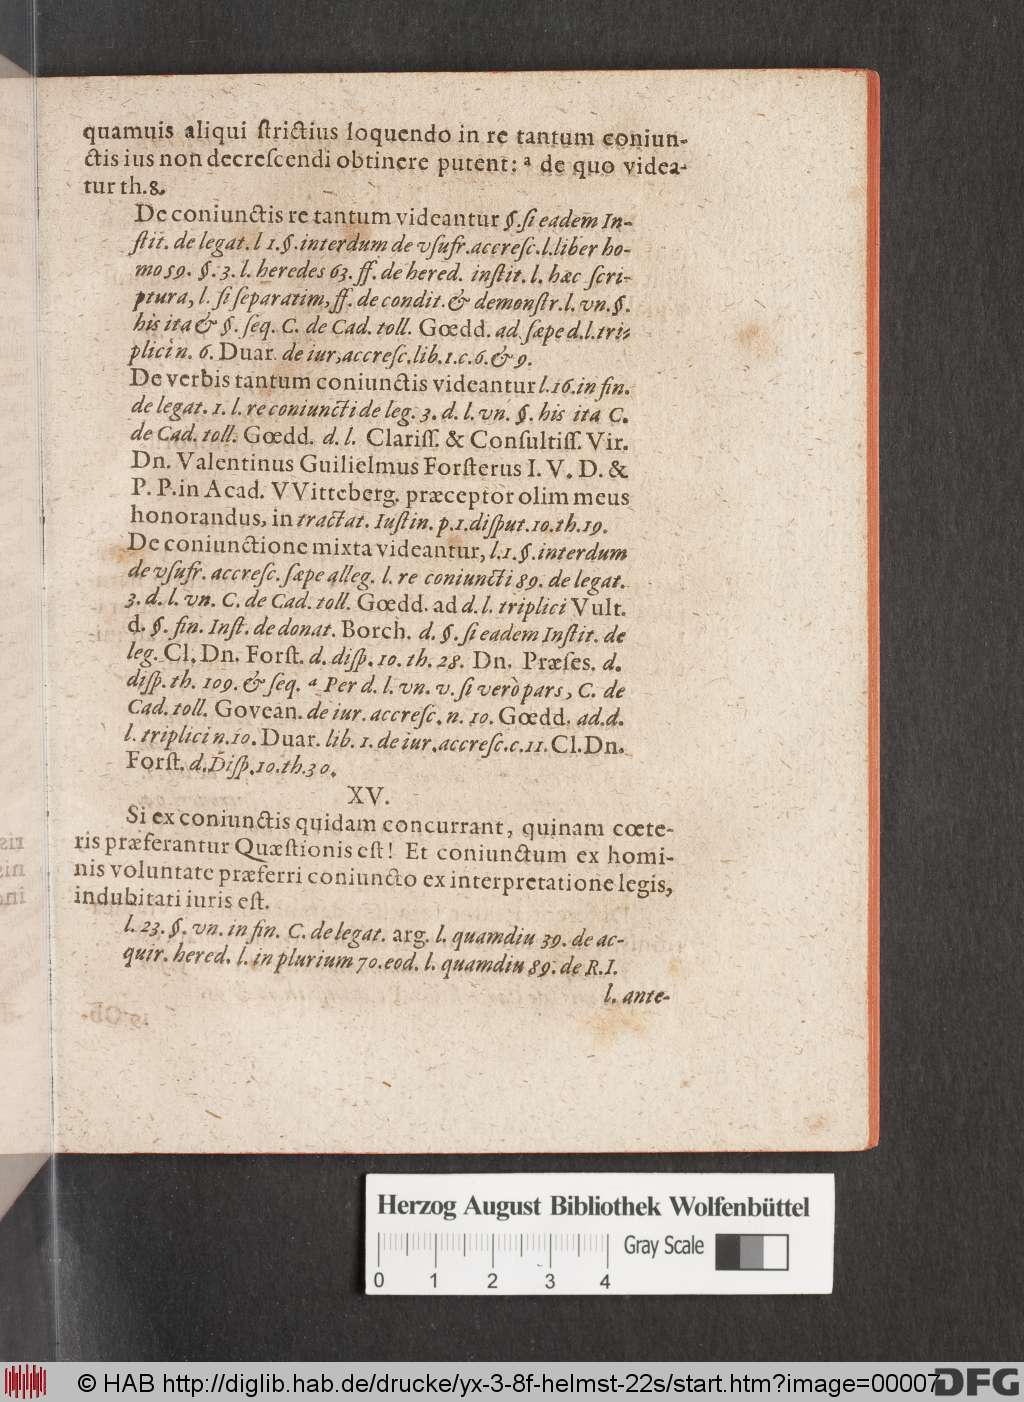 quamuis aliqui ſtrictius loquendo in re tantum coniun-
ctis ius non decreſcendi obtinere putent: ª de quo videa-
tur th. 8.
De coniunctis re tantum videantur §. ſi eadem In-
ſtit. de legat. l 1. §. interdum de vſufr. accreſc. l. liber ho-
mo 59. §. 3. l. heredes 63. ff. de hered. inſtit. l. hæc ſcri-
ptura, l. ſi ſeparatim, ff. de condit. & demonſtr. l. vn. §.
his ita & §. ſeq. C. de Cad. toll. Gœdd. ad ſæpe d. l. tri-
plici n. 6. Duar. de iur, accreſc. lib. 1. c. 6. & 9.
De verbis tantum coniunctis videantur l. 16. in fin.
de legat. 1. l. re coniuncti de leg. 3. d. l. vn. §. his ita C.
de Cad. toll. Gœdd. d. l. Clariſſ. & Conſultiſſ. Vir.
Dn. Valentinus Guilielmus Forſterus I. V. D. &
P. P. in Acad. VVitteberg. præceptor olim meus
honorandus, in tractat. Iuſtin. p. 1. diſput. 10. th. 19.
De coniunctione mixta videantur, l. 1. §. interdum
de vſufr. accreſc. ſæpe alleg. l. re coniuncti 89. de legat.
3. d. l. vn. C. de Cad. toll. Gœdd. ad d. l. triplici Vult.
d. §. fin. Inſt. de donat. Borch. d. §. ſi eadem Inſtit. de
leg. Cl. Dn. Forſt. d. diſp. 10. th. 28. Dn. Præſes. d.
diſp. th. 109. & ſeq. ª Per d. l. vn. v. ſi verò pars, C. de
Cad. toll. Govean. de iur. accreſc. n. 10. Gœdd. ad. d.
l. triplici n. 10. Duar. lib. 1. de iur. accreſc. c. 11. Cl. Dn.
Forſt. d. Diſp. 10. th. 30.
XV.
Si ex coniunctis quidam concurrant, quinam cœte-
ris præferantur Quæſtionis eſt! Et coniunctum ex homi-
nis voluntate præferri coniuncto ex interpretatione legis,
indubitati iuris eſt.
l. 23. §. vn. in fin. C. de legat. arg. l. quamdiu 39. de ac-
quir. hered. l. in plurium 70. eod. l. quamdiu 89. de R. I.
l. ante-
Herzog August Bibliothek Wolfenbüttel
Gray Scale
0 1 2 3 4
© HAB http://diglib.hab.de/drucke/yx-3-8f-helmst-22s/start.htm?image=00007
DFG